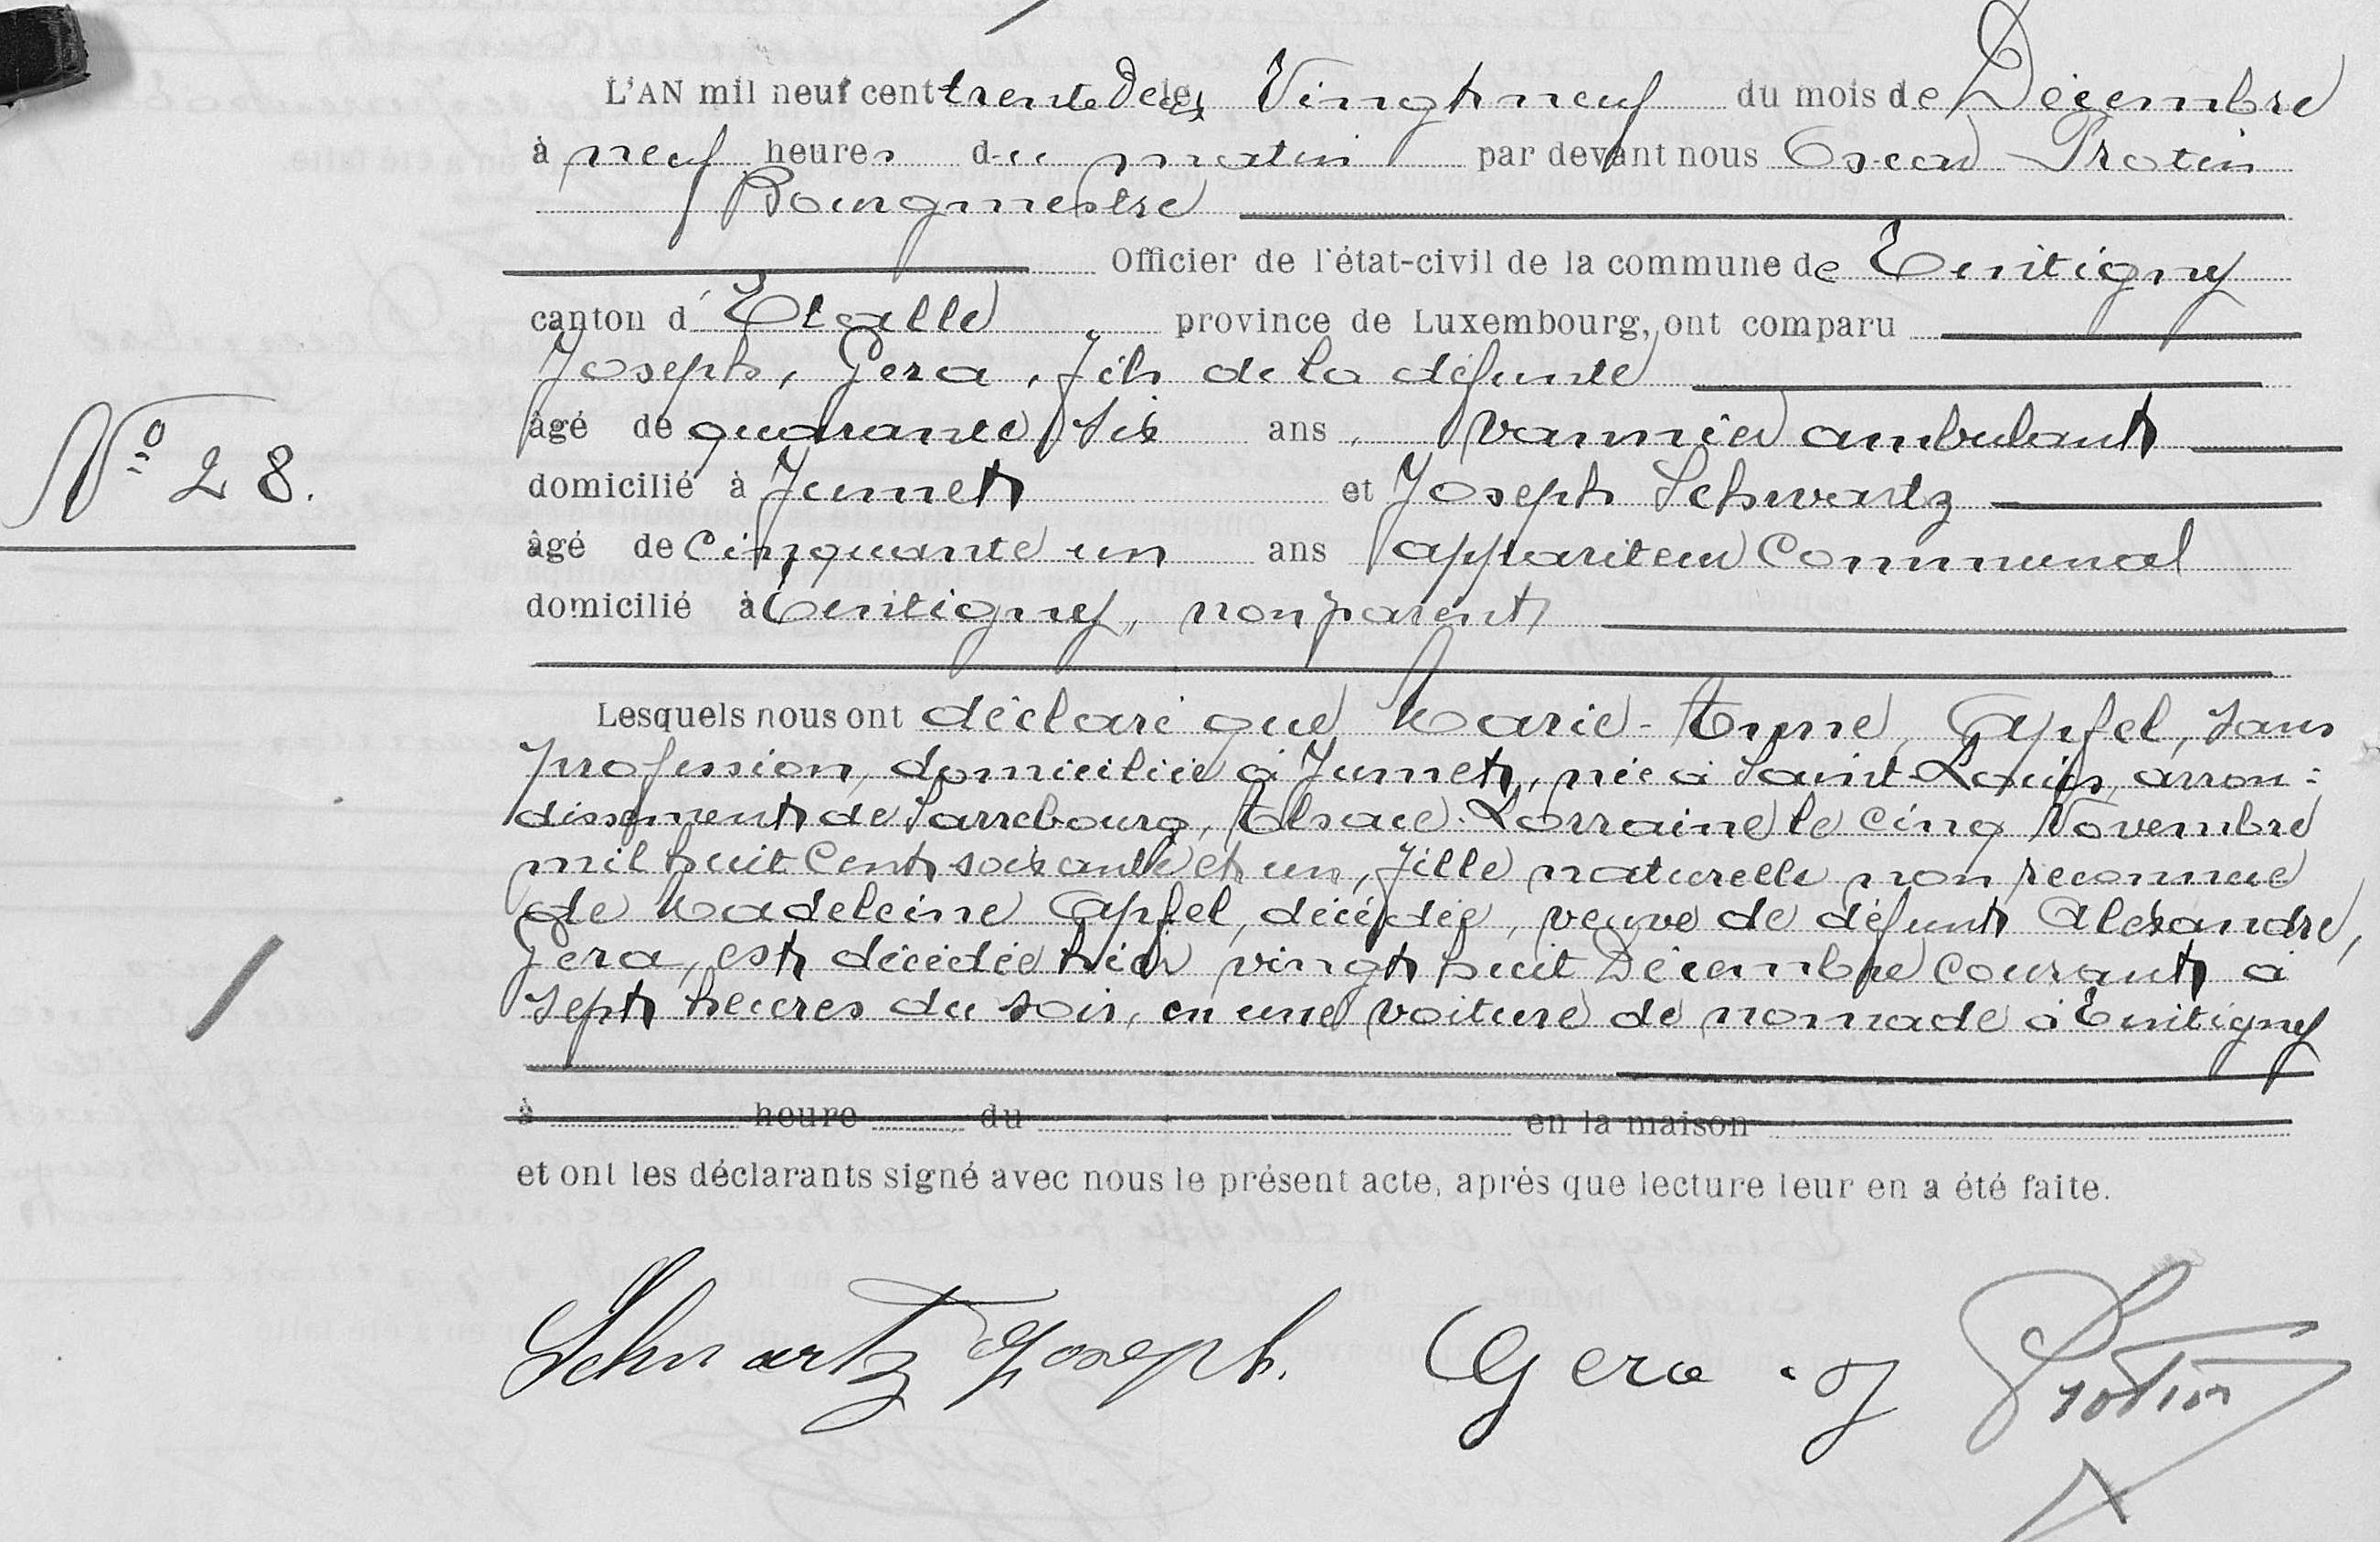 L'AN mil neuf cent trente Deux le Vingt neuf du mois de Décembre
à neuf heures du matin par devant nous Oscar Protin
Bourgmestre
Officier de l'état-civil de la commune de Tintigny
canton d'Etalle province de Luxembourg, ont comparu
Joseph, Gera, fils de la défunte
âgé de quarante six ans, vannier ambulant
domicilié à Jumet et Joseph Schwartz
N° 28.
âgé de Cinquante un ans appariteur Communal
domicilié à Tintigny, non parent
Lesquels nous ont déclaré que Marie-Anne, Apfel, sans
profession, domiciliée à Jumet, née à Saint-Louis, arron:
dissement de Sarrebourg, Alsace-Lorraine le cinq Novembre
mil huit Cent soixante et un, fille naturelle non reconnue
de Madeleine Apfel, décédée, veuve de défunt Alexandre,
Gera, est décédée hier vingt huit Décembre courant à
sept heures du soir, en une voiture de nomade à Tintigny
à heure du en la maison
et ont les déclarants signé avec nous le présent acte, après que lecture leur en a été faite.
Schwartz Joseph. Gera . J Protin